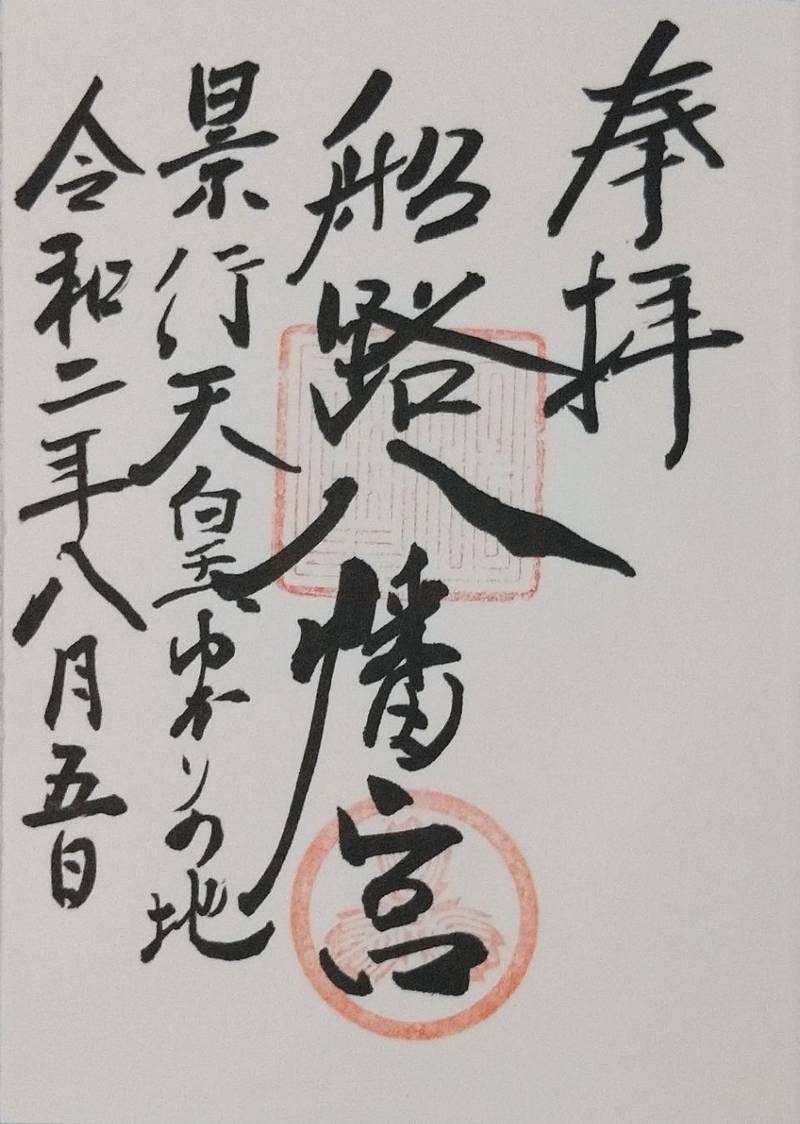 奉拝
船路八幡宮
景行天皇ゆかりの地
令和二年八月五日